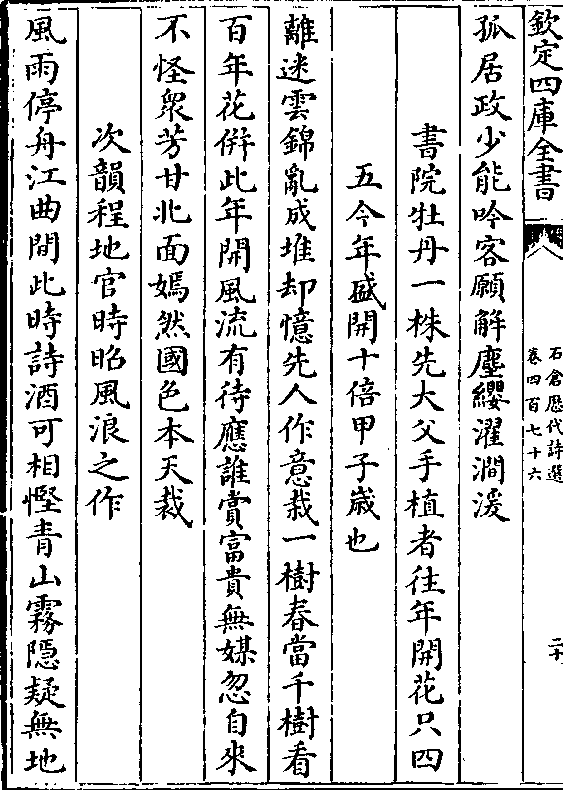 欽定四庫全書
石倉歷代詩選
卷四百七十六
二十
孤居政少能吟客願解塵纓濯澗湲
書院牡丹一株先大父手植者往年開花只四
五今年盛開十倍甲子歲也
離迷雲錦亂成堆却憶先人作意栽一樹春當千樹看
百年花倂此年開風流有待應誰賞富貴無媒忽自來
不怪衆芳甘北面嫣然國色本天裁
次韻程地官時昭風浪之作
風雨停舟江曲間此時詩酒可相慳青山霧隱疑無地